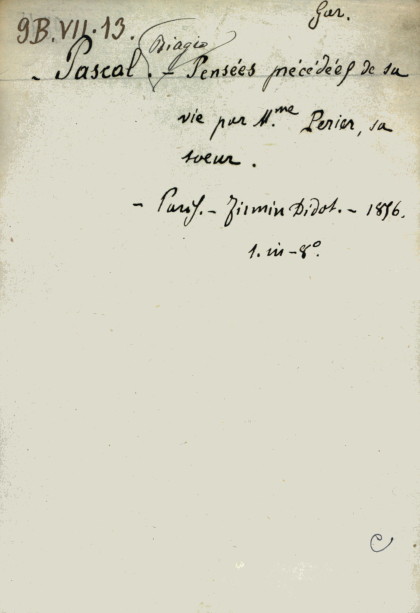 Gar.
9B.VII.13.
Biagio
- Pascal. - Pensées précédées de sa
vie par M.me Perier, sa
soeur.
- Paris. - Firmin Didot. - 1856.
1. in-8°.
C